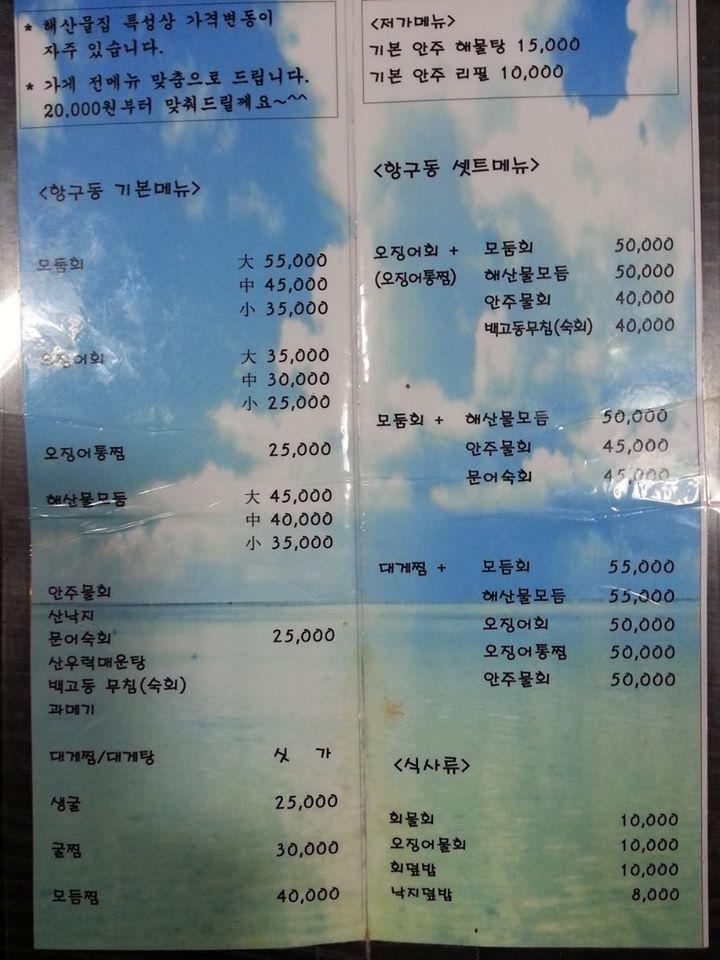 * 해산물집 특성상 가격변동이
자주 있습니다.
* 가게 전메뉴 맞춤으로 드립니다.
20.000원부터 맞춰드릴께요~^^
<항구동 기본메뉴>
모둠회 大 55,000
中 45,000
小 35,000
오징어회 大 35,000
中 30,000
小 25,000
오징어통찜 25,000
해산물모둠 大 45,000
中 40,000
小 35,000
안주물회
산낙지
문어숙회 25,000
산우럭매운탕
백고동 무침(숙회)
과메기
대게찜/대게탕 싯 가
생굴 25,000
굴찜 30,000
모듬찜 40,000
<저가메뉴>
기본 안주 해물탕 15,000
기본 안주 리필 10,000
<항구동 셋트메뉴>
오징어회 + 모둠회 50,000
(오징어통찜) 해산물모듬 50,000
안주물회 40,000
백고동무침(숙회) 40,000
모둠회 + 해산물모듬 50,000
안주물회 45,000
문어숙회 45,000
대게찜 + 모둠회 55,000
해산물모듬 55,000
오징어회 50,000
오징어통찜 50,000
안주물회 50,000
<식사류>
회물회 10,000
오징어물회 10,000
회덮밥 10,000
낙지덮밥 8,000